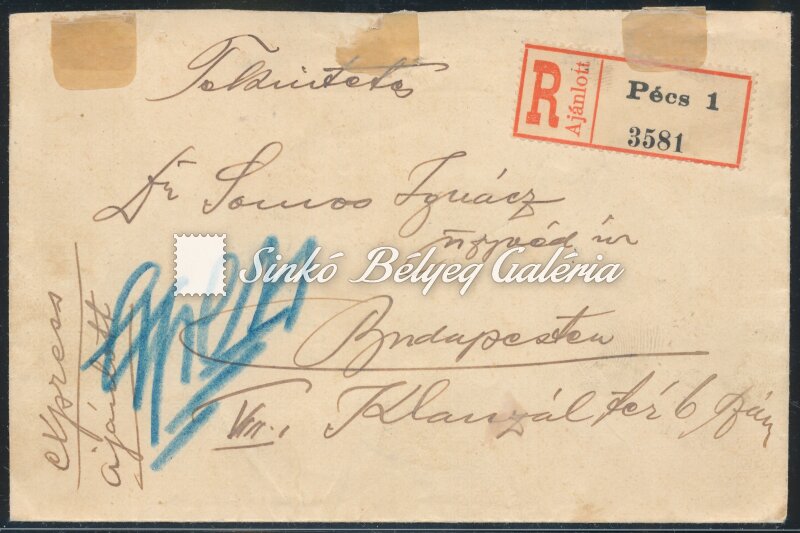 Tekintetes
R
Ajánlott
Pécs 1
3581
Dr Somos Ignácz
ügyvéd úr
Sinkó Bélyeg Galéria
Budapesten
Klauzál tér 6 szám
express
ajánlott